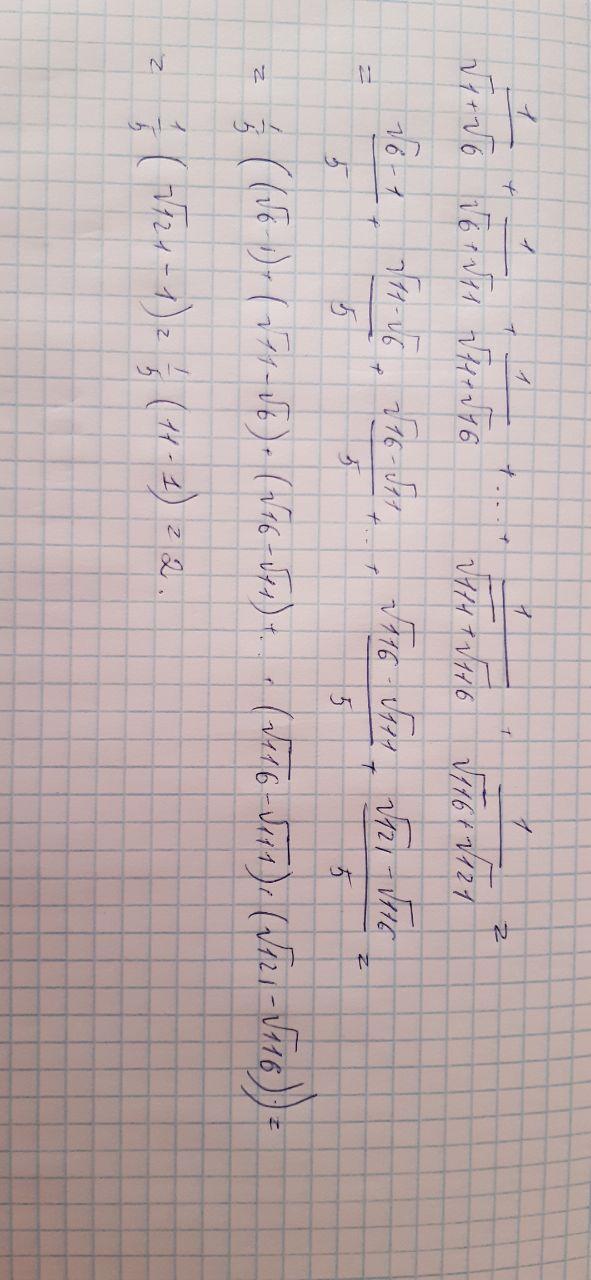 1/(√1+√6) + 1/(√6+√11) + 1/(√11+√16) + .... + 1/(√111+√116) + 1/(√116+√121) =
= (√6-1)/5 + (√11-√6)/5 + (√16-√11)/5 + ... + (√116-√111)/5 + (√121-√116)/5 =
= 1/5 ((√6-1)+(√11-√6)+(√16-√11)+...+(√116-√111)+(√121-√116)) =
= 1/5 (√121-1) = 1/5 (11-1) = 2.